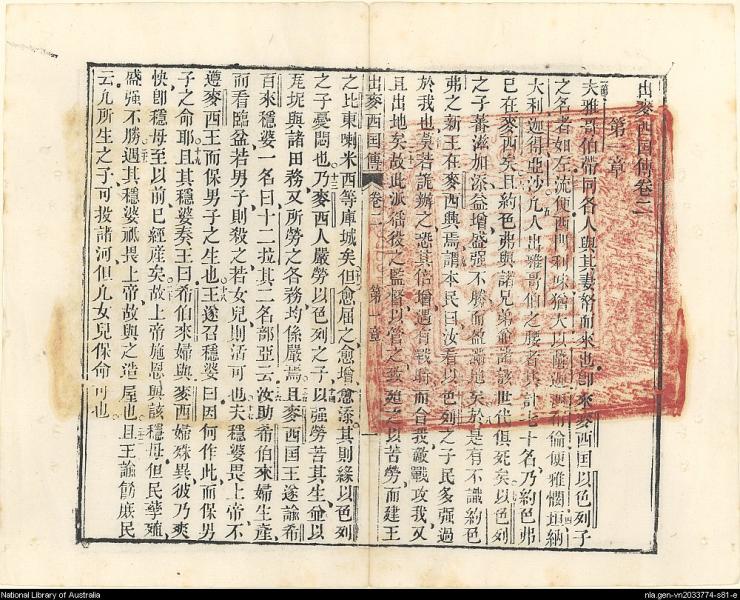 出麥西国傳卷二
第一章
夫雅哥伯帶同各人與其妻孥而來也即來麥西国以色列子
之名者如左流便西門利未猶大以薩迦
大利迦得亞沙凡人出雅哥伯之腰者共計七十名乃約色弗
已在麥西矣且約色弗與諸兄弟並諸該世代俱死矣以色列
之子蕃滋加添益增盛强不勝而盈滿地矣於是有不識約色
弗之新王在麥西興焉謂本民曰汝看以色列之子民多强過
於我也莫若謊辦之恐其倍增遇有戰時而合我敵戰攻我又
且出地矣故此派徭役之監督以管之致廹之以苦勞而建王
出麥西国傳 卷二 第一章 一
之比東喇米西等庫城矣但愈屈之愈增愈添其則緣以色列
之子憂悶也乃麥西人嚴勞以色列之子以强勞苦其生命以
坭與諸田務又所勞之各務均係嚴焉且麥西国王遂諭希
百來穩婆一名曰十二拉其二名部亞云汝助希伯來婦生產
而看臨盆若男子則殺之若女兒則活可也夫穩婆畏上帝不
遵麥西王而保男子之生也王遂召穩婆曰因何作此而保男
子之命耶且其穩婆奏王曰希伯來婦與麥西婦殊異彼乃爽
快卽穩母至以前已經產矣故上帝施恩與該穩母但民孳
盛强不勝遇其穩婆祗畏上帝故與之造屋也且王諭飭庶民
云凢所生之子可投諸河但凢女兒保命可也
National Library of Australia
nla.gen-vn2033774-s81-e